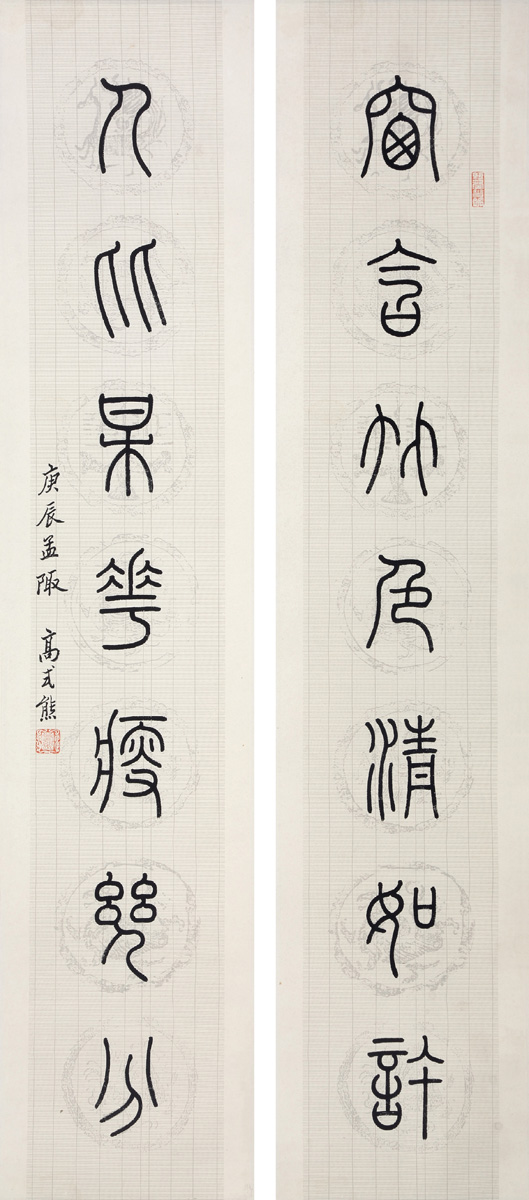 窗含竹色清如許
人比某華瘦幾分
庚辰孟陬 高式熊